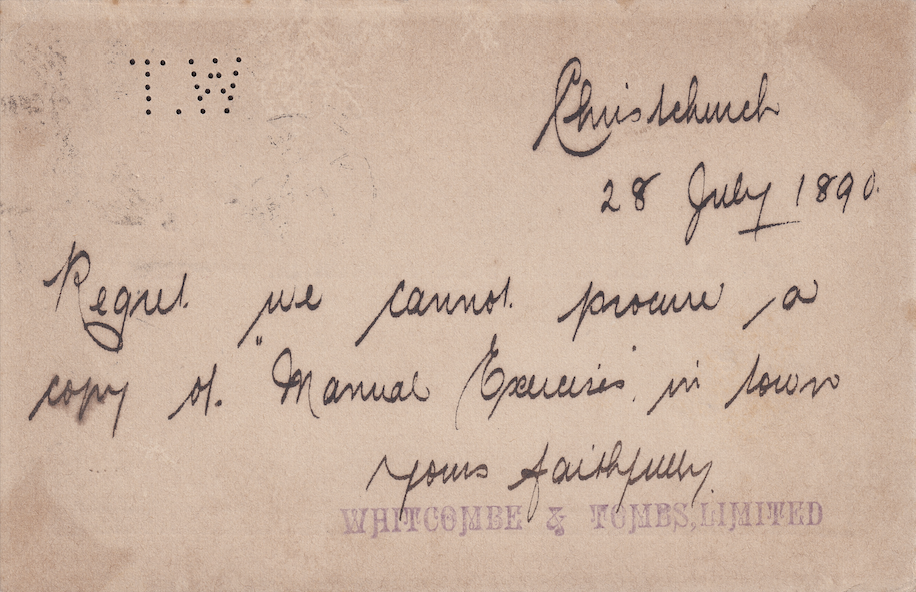 T.W
Christchurch
28 July 1890.
Regret we cannot procure a
copy of "Manual Exercises" in town
yours faithfully
WHITCOMBE & TOMBS, LIMITED